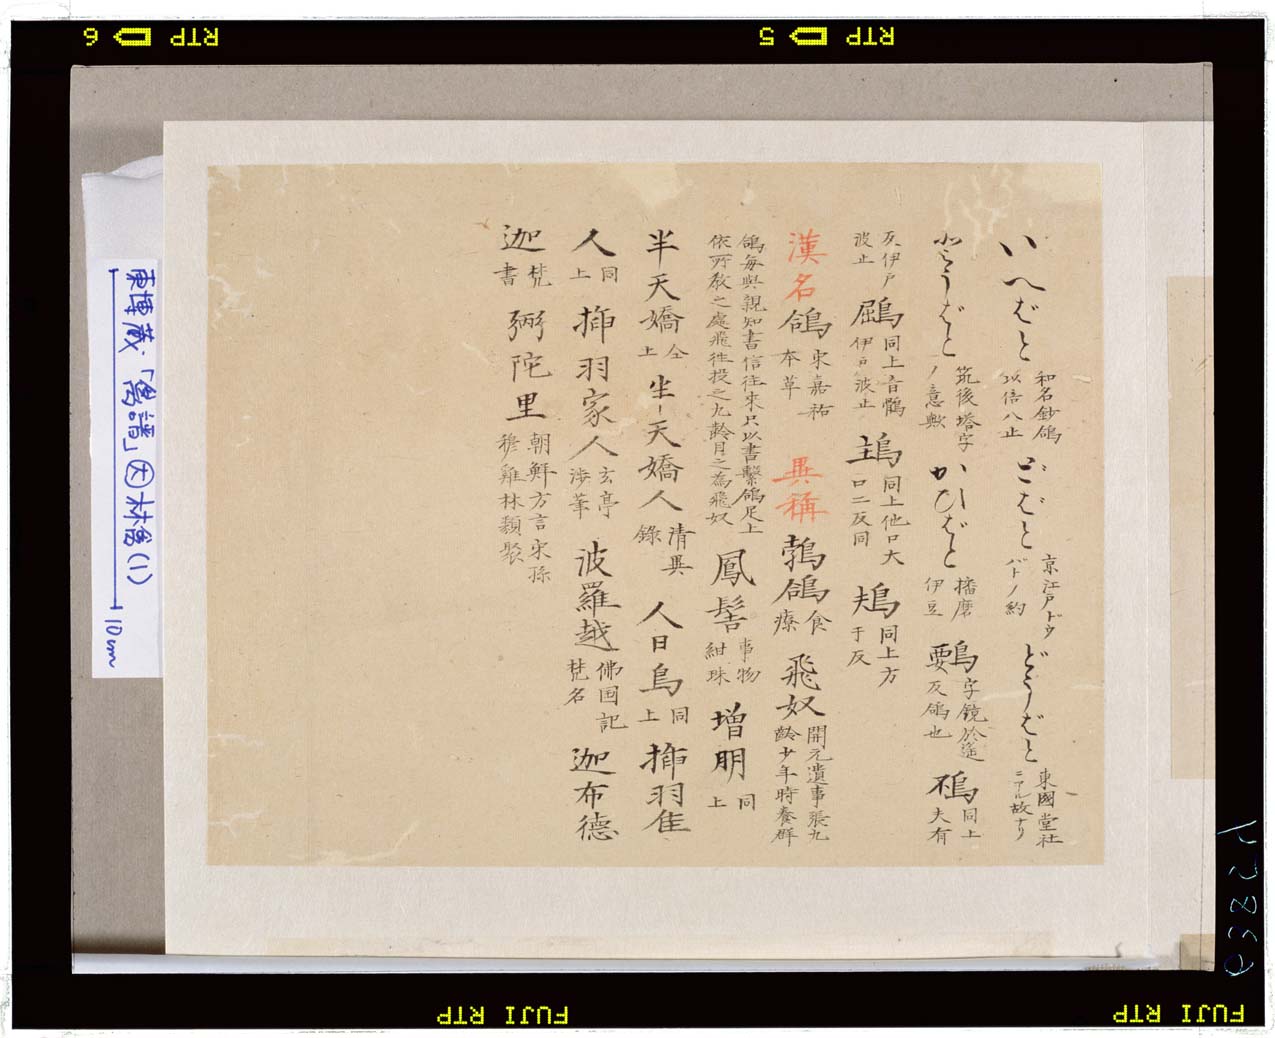 いへばと 和名鈔鴿
以倍八止 どばと 京江戸ドウ
バトノ約 どうばと 東國堂社
ニアル故ナリ
とうばと 筑後塔字
ノ意歟 かひばと 播磨
伊豆 字鏡於遥
反鴿也 同上
夫有
反伊戸
波止 鶌 同上音鶻
伊戸波止 同上他口大
口二反同 鳺 同上方
于反
漢名 鴿 宋嘉祐
本草 異稱 鵓鴿 食
療 飛奴 開元遺事張九
齢少年時養群
鴿毎與親知書信往来只以書繋鴿足上
依所教之處飛往投之九齢目之為飛奴 鳳髻 事物
紺珠 増明 同
上
半天嬌 仝
上 半天嬌人 清異
錄 人日鳥 同
上 挿羽隹
人 同
上 挿羽家人 玄亭
渉筆 波羅越 佛国記
梵名 迦布德
迦 梵
書 弼陀里 朝鮮方言宋孫
穆雞林類聚
東博蔵・「禽譜」㊅林禽(1)
10cm
RTP 5
RTP 6
FUJI RTP
FUJI RTP